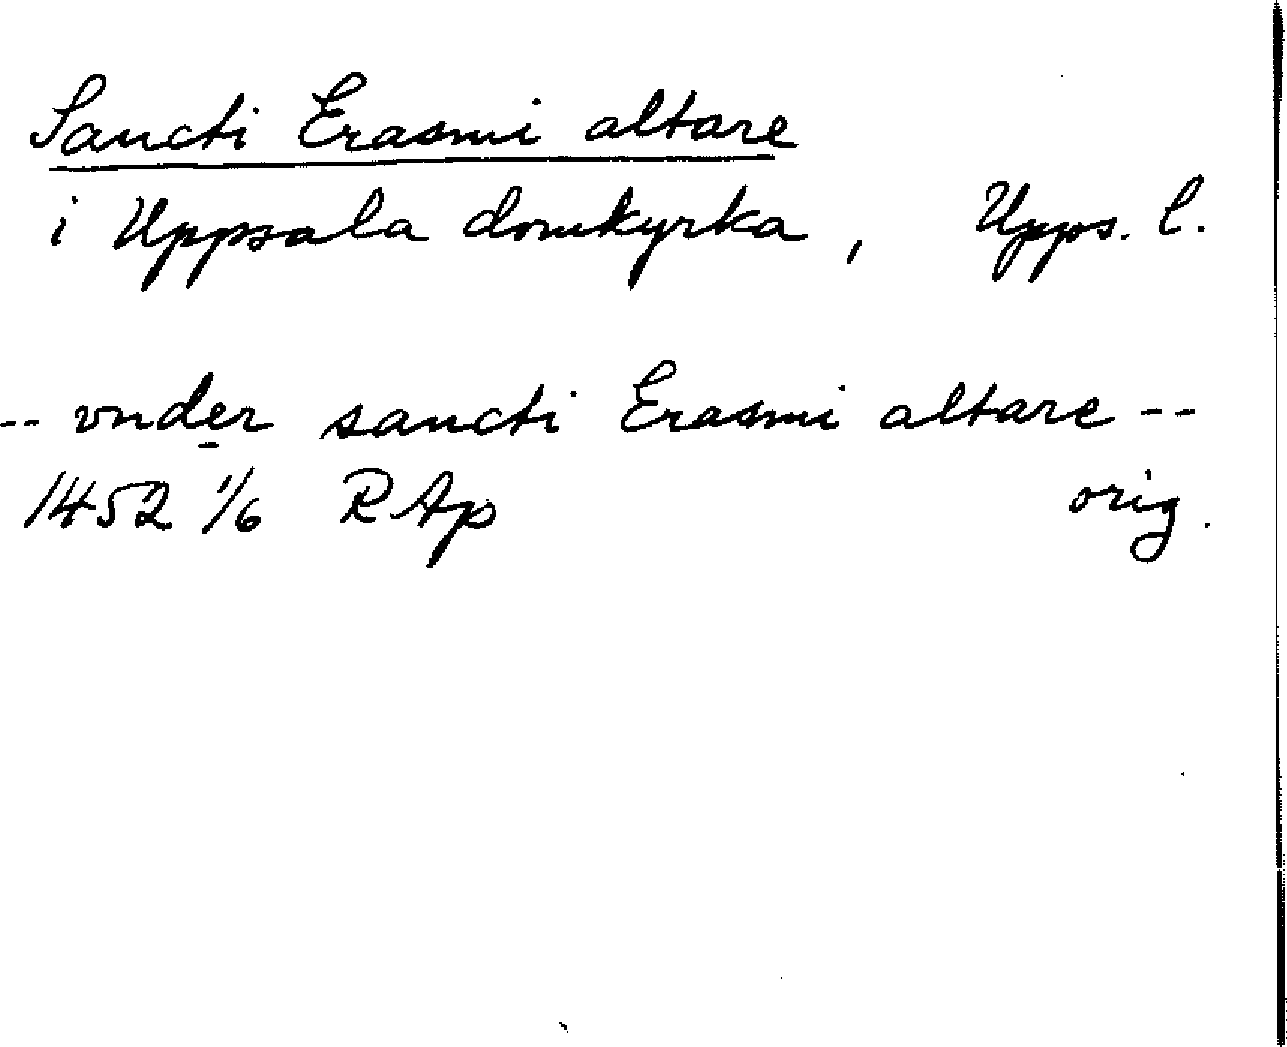 Sancti Erasmi altare
i Uppsala domkyrka, Upps. l.
-- vnder sancti Erasmi altare --
1452 1/6 RAp orig.